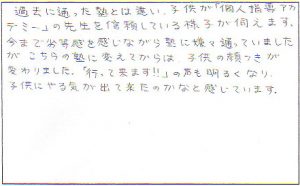 過去に通った塾とは違い、子供が「個人指導アカ
デミー」の先生を信頼している様子が伺えます。
今まで劣等感を感じながら塾に嫌々通っていました
が こちらの塾に変えてからは 子供の顔つきが
変わりました。「行って来ます!!」の声も明るくなり、
子供にやる気が出て来たのかなと感じています。